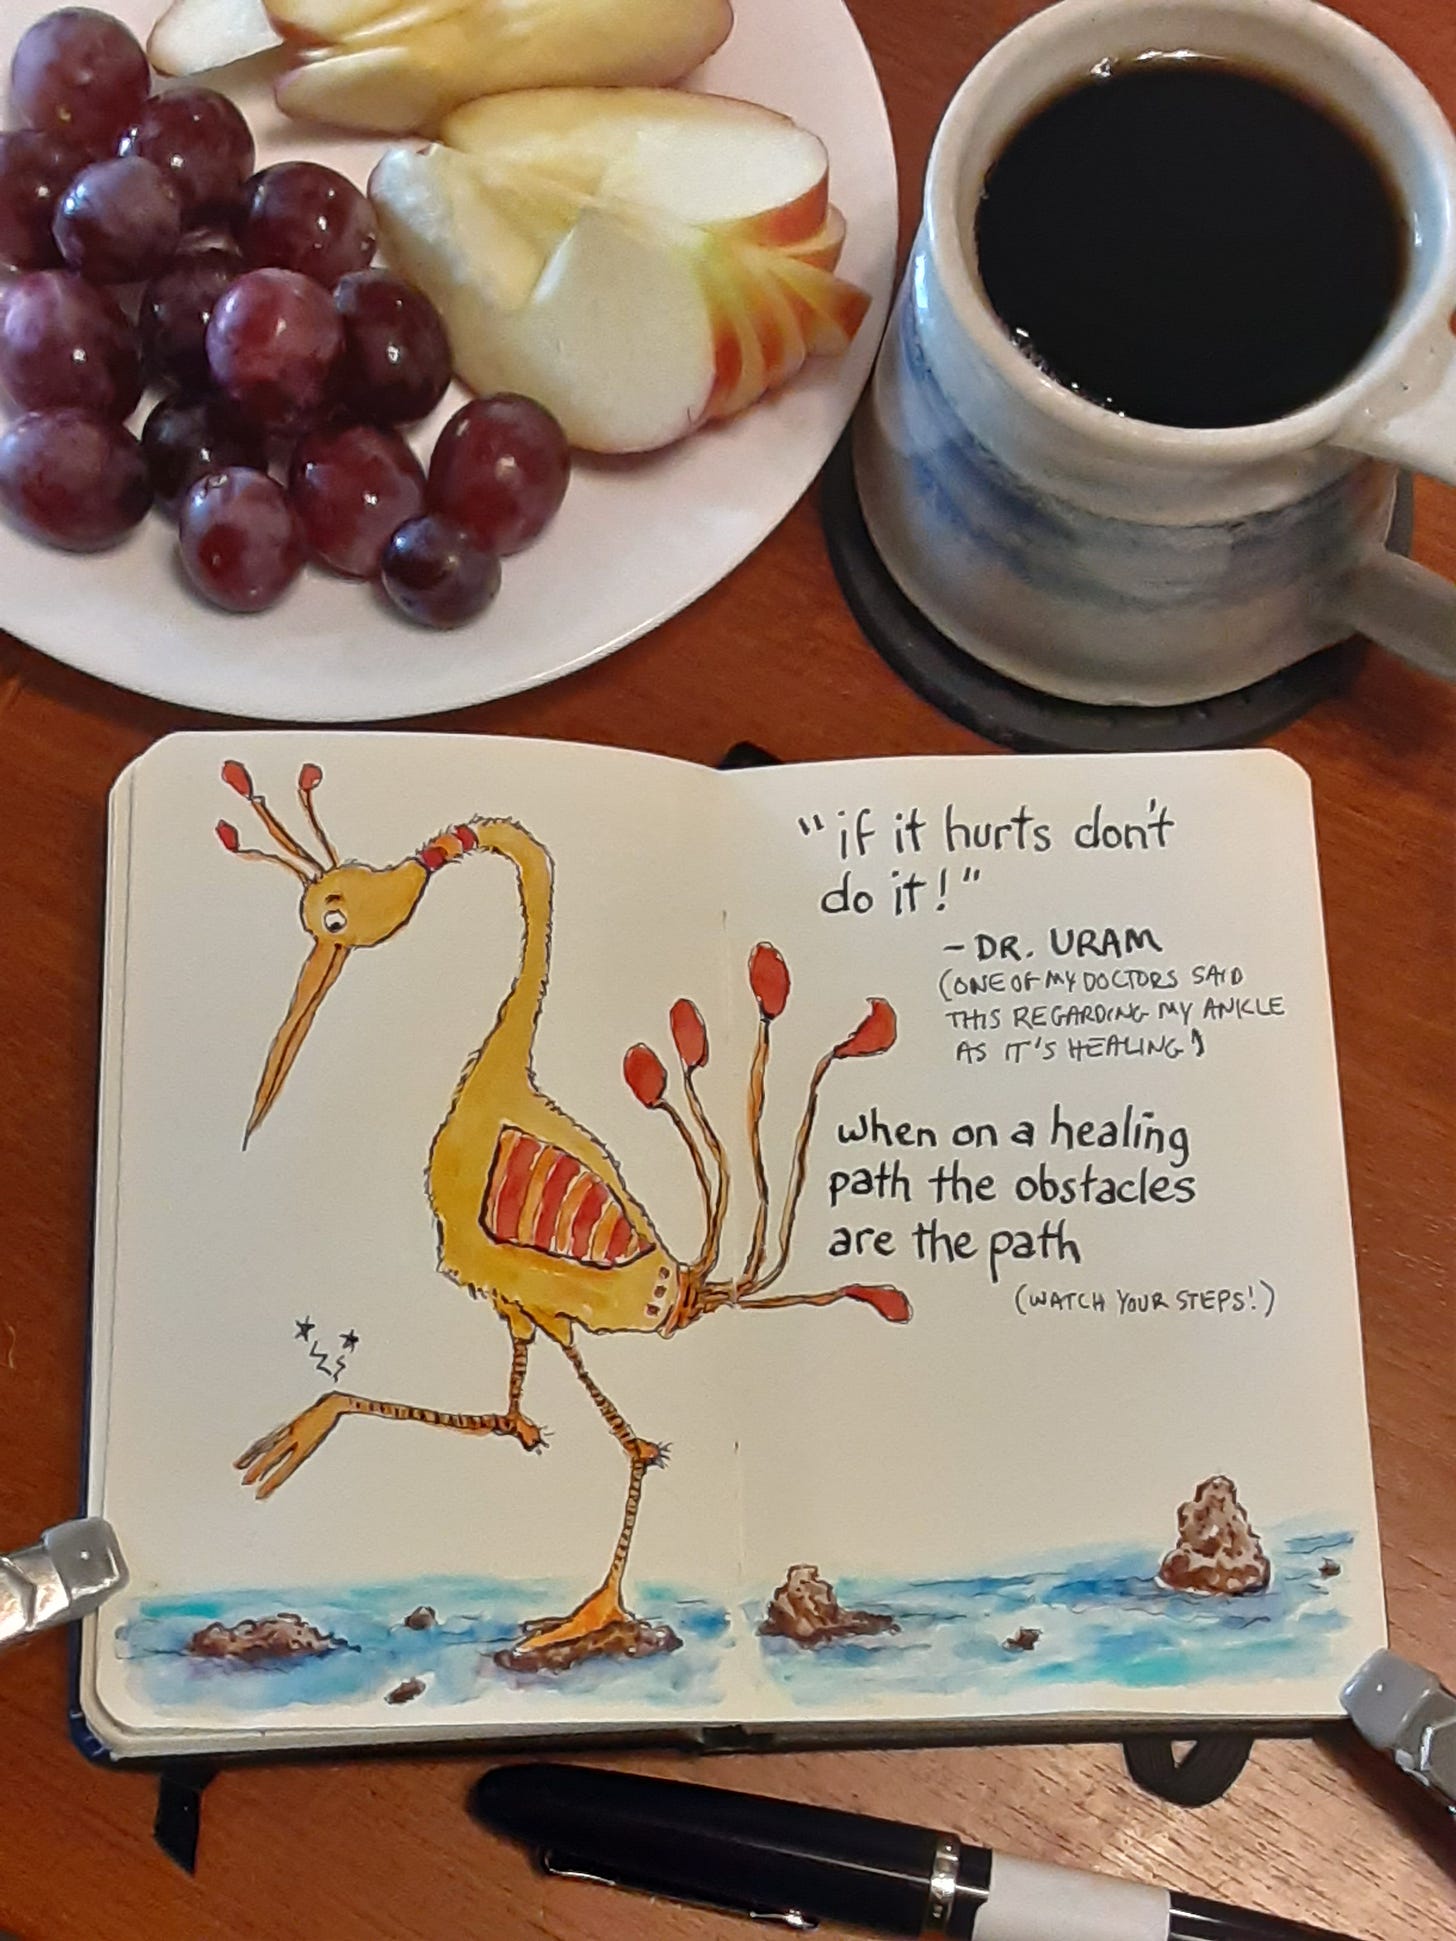 "if it hurts don't
do it!"
- DR. URAM
(ONE OF MY DOCTORS SAID
THIS REGARDING MY ANKLE
AS IT'S HEALING)
when on a healing
path the obstacles
are the path
(WATCH YOUR STEPS!)